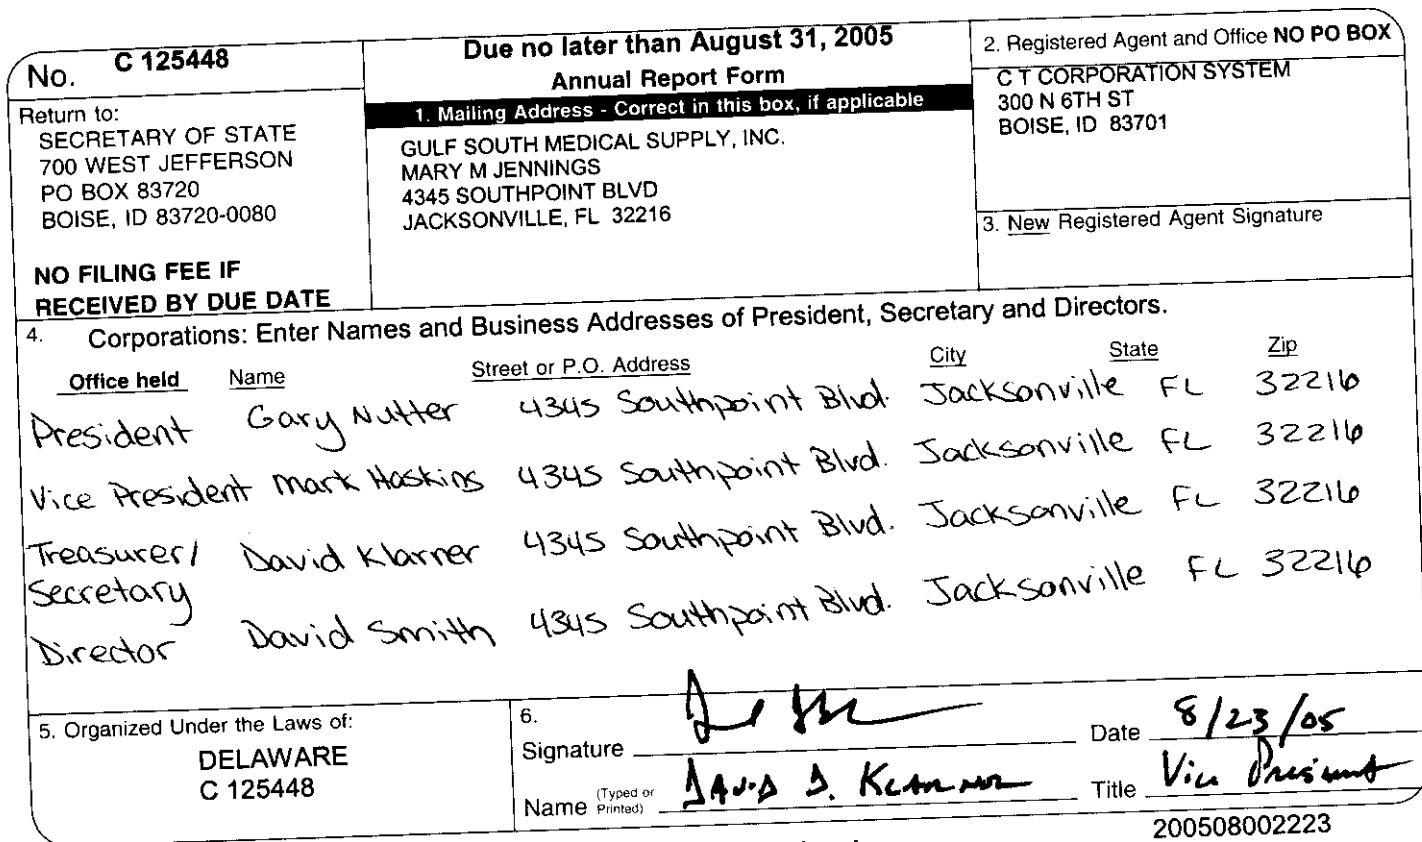 No. C 125448
Return to:
SECRETARY OF STATE
700 WEST JEFFERSON
PO BOX 83720
BOISE, ID 83720-0080
NO FILING FEE IF
RECEIVED BY DUE DATE
Due no later than August 31, 2005
Annual Report Form
1. Mailing Address - Correct in this box, if applicable
GULF SOUTH MEDICAL SUPPLY, INC.
MARY M JENNINGS
4345 SOUTHPOINT BLVD
JACKSONVILLE, FL 32216
2. Registered Agent and Office NO PO BOX
C T CORPORATION SYSTEM
300 N 6TH ST
BOISE, ID 83701
3. New Registered Agent Signature
4. Corporations: Enter Names and Business Addresses of President, Secretary and Directors.
Office held Name Street or P.O. Address City State Zip
President Gary Nutter 4345 Southpoint Blvd. Jacksonville FL 32216
Vice President Mark Haskins 4345 Southpoint Blvd. Jacksonville FL 32216
Treasurer/ David Klarner 4345 Southpoint Blvd. Jacksonville FL 32216
Secretary
Director David Smith 4345 Southpoint Blvd. Jacksonville FL 32216
5. Organized Under the Laws of:
DELAWARE
C 125448
6.
Signature
Date 8/23/05
Name (Typed or Printed) DAVID D. KLARNER
Title Vice President
200508002223